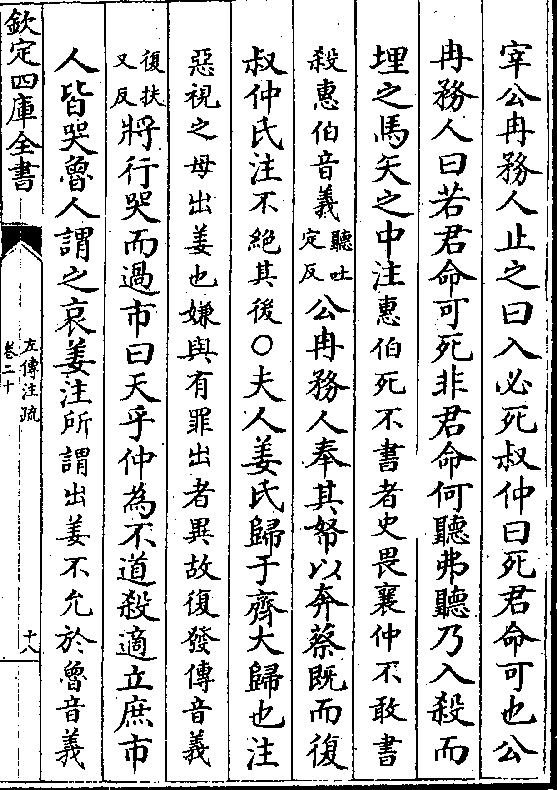 宰公冉務人止之曰入必死叔仲曰死君命可也公
冉務人曰若君命可死非君命何聽弗聽乃入殺而
埋之馬矢之中注惠伯死不書者史畏襄仲不敢書
殺惠伯音義聽吐定反公冉務人奉其帑以奔蔡既而復
叔仲氏注不絕其後○夫人姜氏歸于齊大歸也注
惡視之母出姜也嫌與有罪出者異故復發傳音義
復扶又反將行哭而過市曰天乎仲為不道殺適立庶市
人皆哭魯人謂之哀姜注所謂出姜不允於魯音義
欽定四庫全書
左傳注疏
卷二十
十八